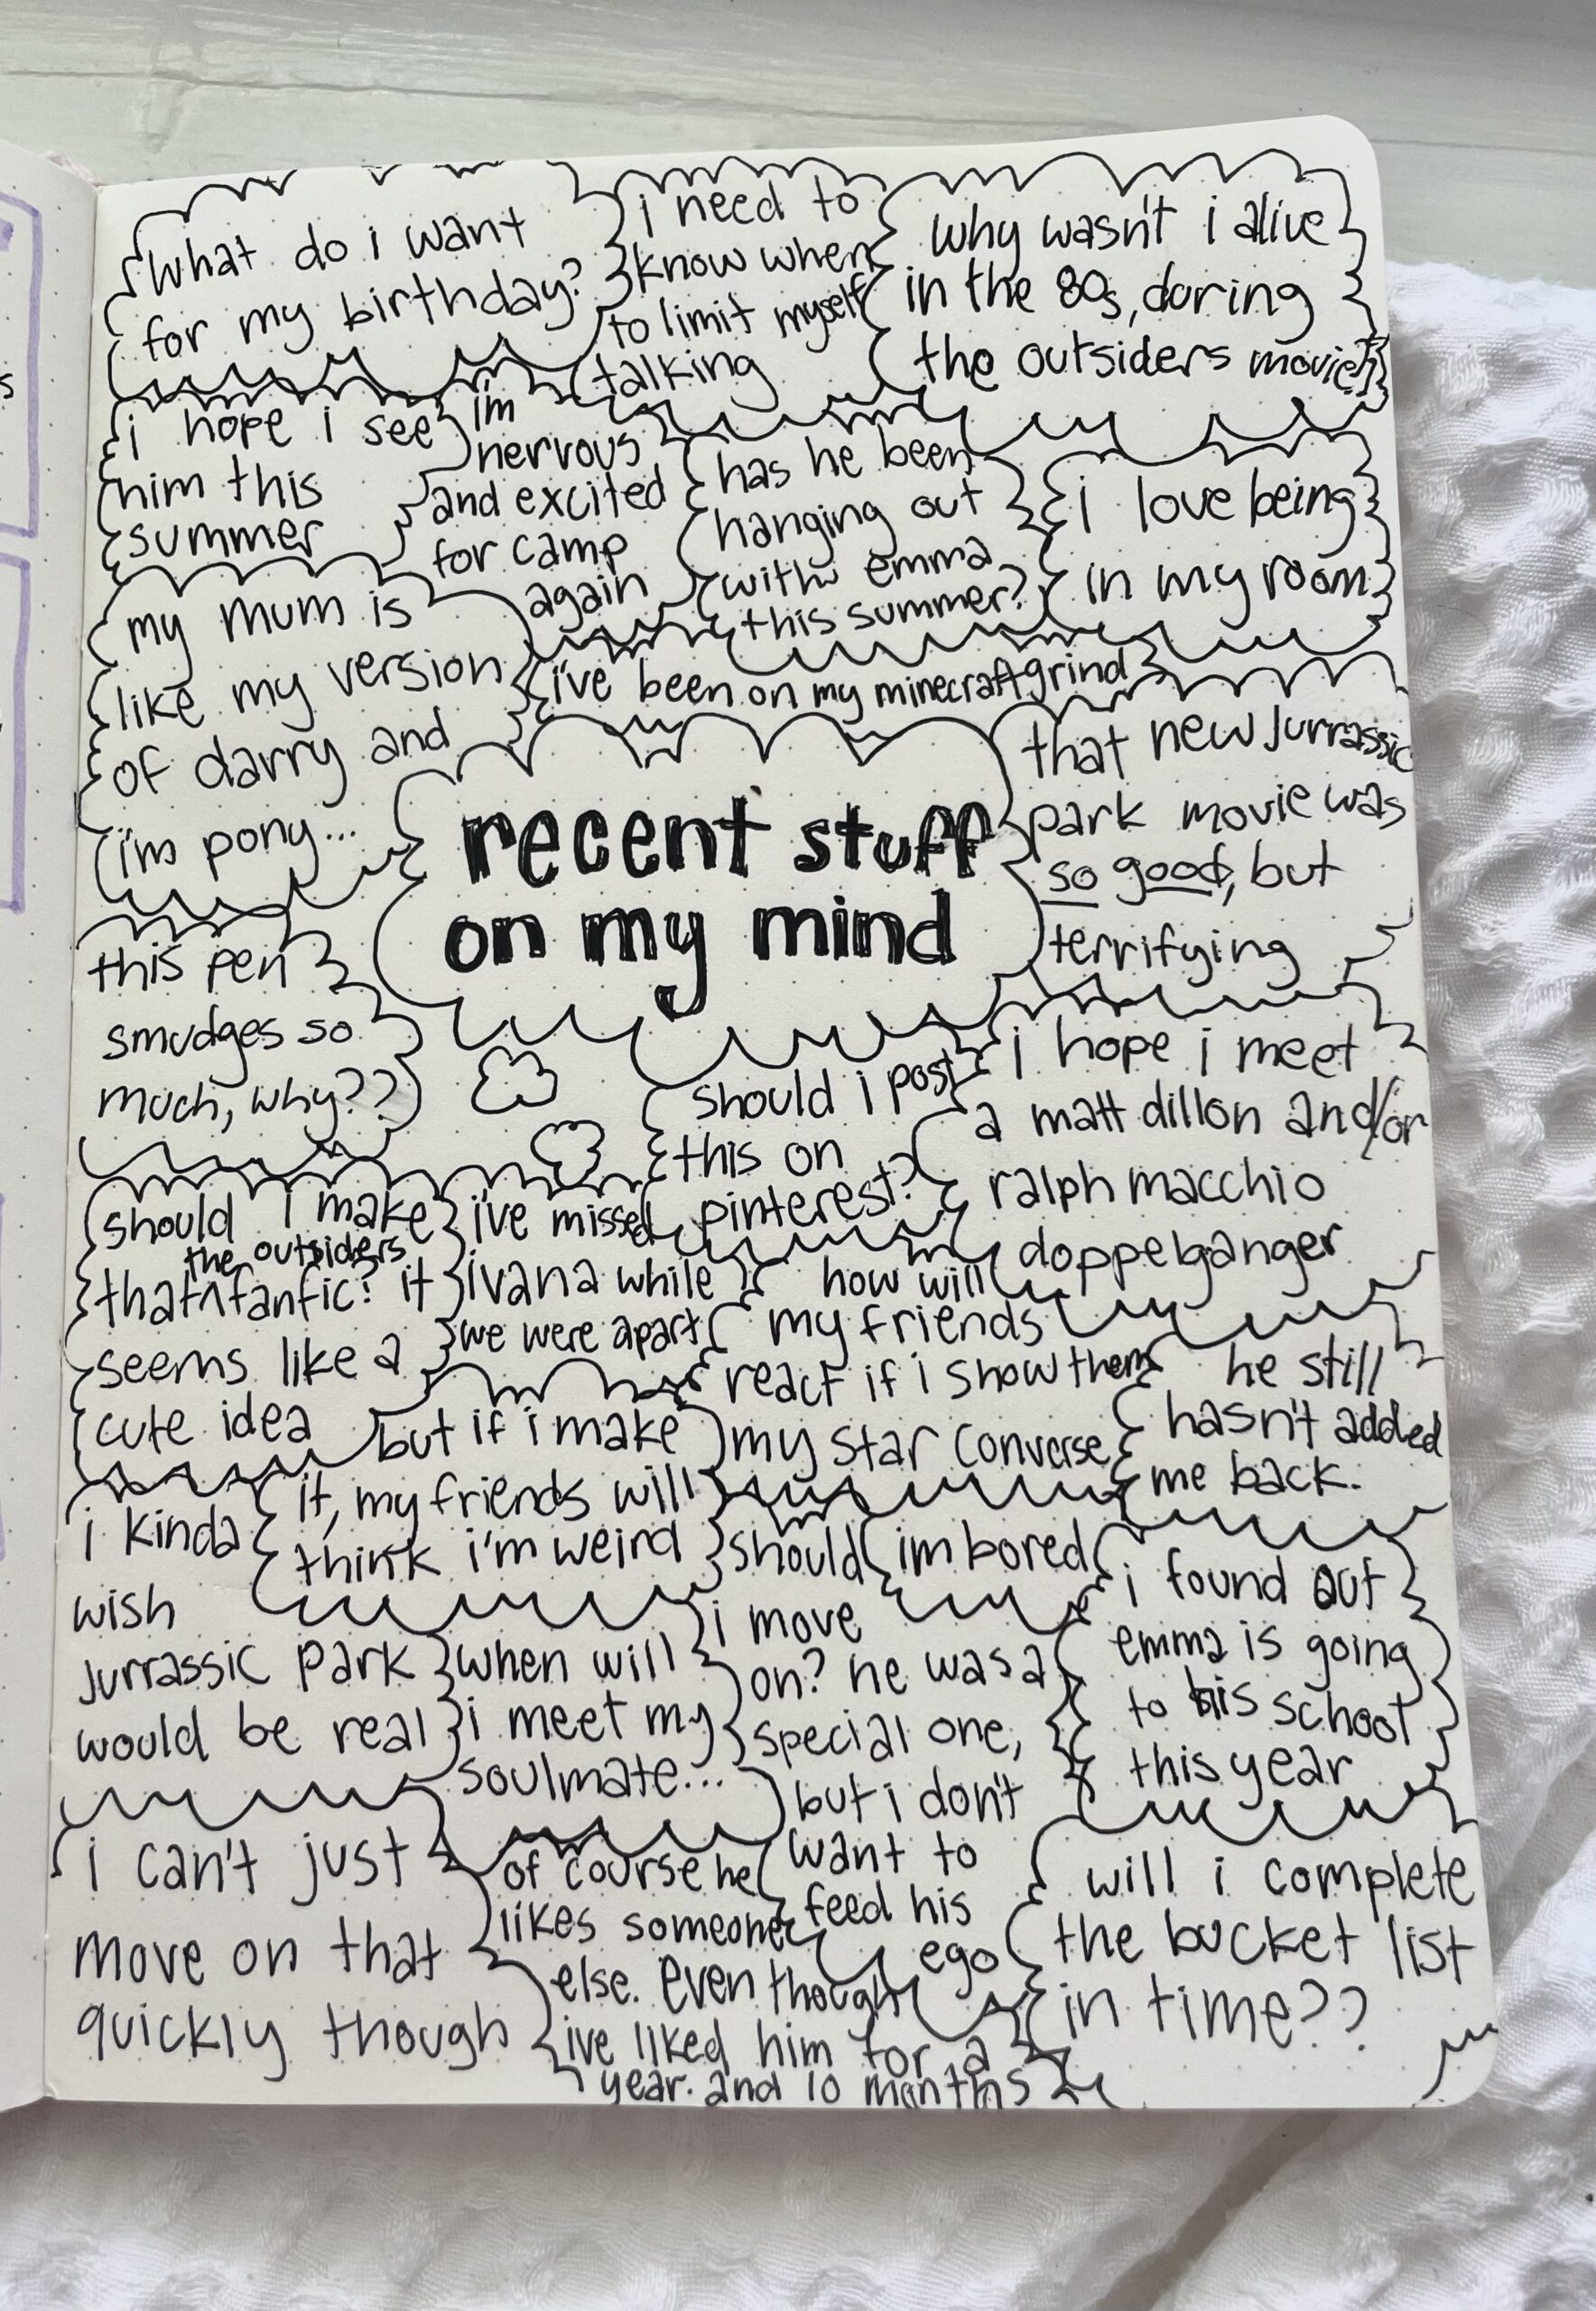 what do i want
for my birthday?
i need to
know when
to limit myself
talking
why wasn't i alive
in the 80s, during
the outsiders movie?!
i hope i see
him this
summer
im
nervous
and excited
for camp
again
has he been
hanging out
with emma
this summer?
i love being
in my room
my mum is
like my version
of darry and
i'm pony...
i've been on my minecraft grind
recent stuff
on my mind
that new Jurrassic
park movie was
so good, but
terrifying
this pen
smudges so
much, why??
should i post
this on
pinterest?
i hope i meet
a matt dillon and/or
ralph macchio
doppelganger
should i make
the outsiders
that^fanfic? it
seems like a
cute idea
i've missed
ivana while
we were apart
how will
my friends
react if i show them
my star converse
he still
hasn't added
me back.
but if i make
it, my friends will
think i'm weird
i kinda
wish
Jurrassic Park
would be real
when will
i meet my
soulmate...
should
i move
on? he was a
special one,
but i don't
want to
feed his
ego
im bored
i found out
emma is going
to his school
this year
i can't just
move on that
quickly though
of course he
likes someone
else. Even though
ive liked him for a
year. and 10 months
will i complete
the bucket list
in time??